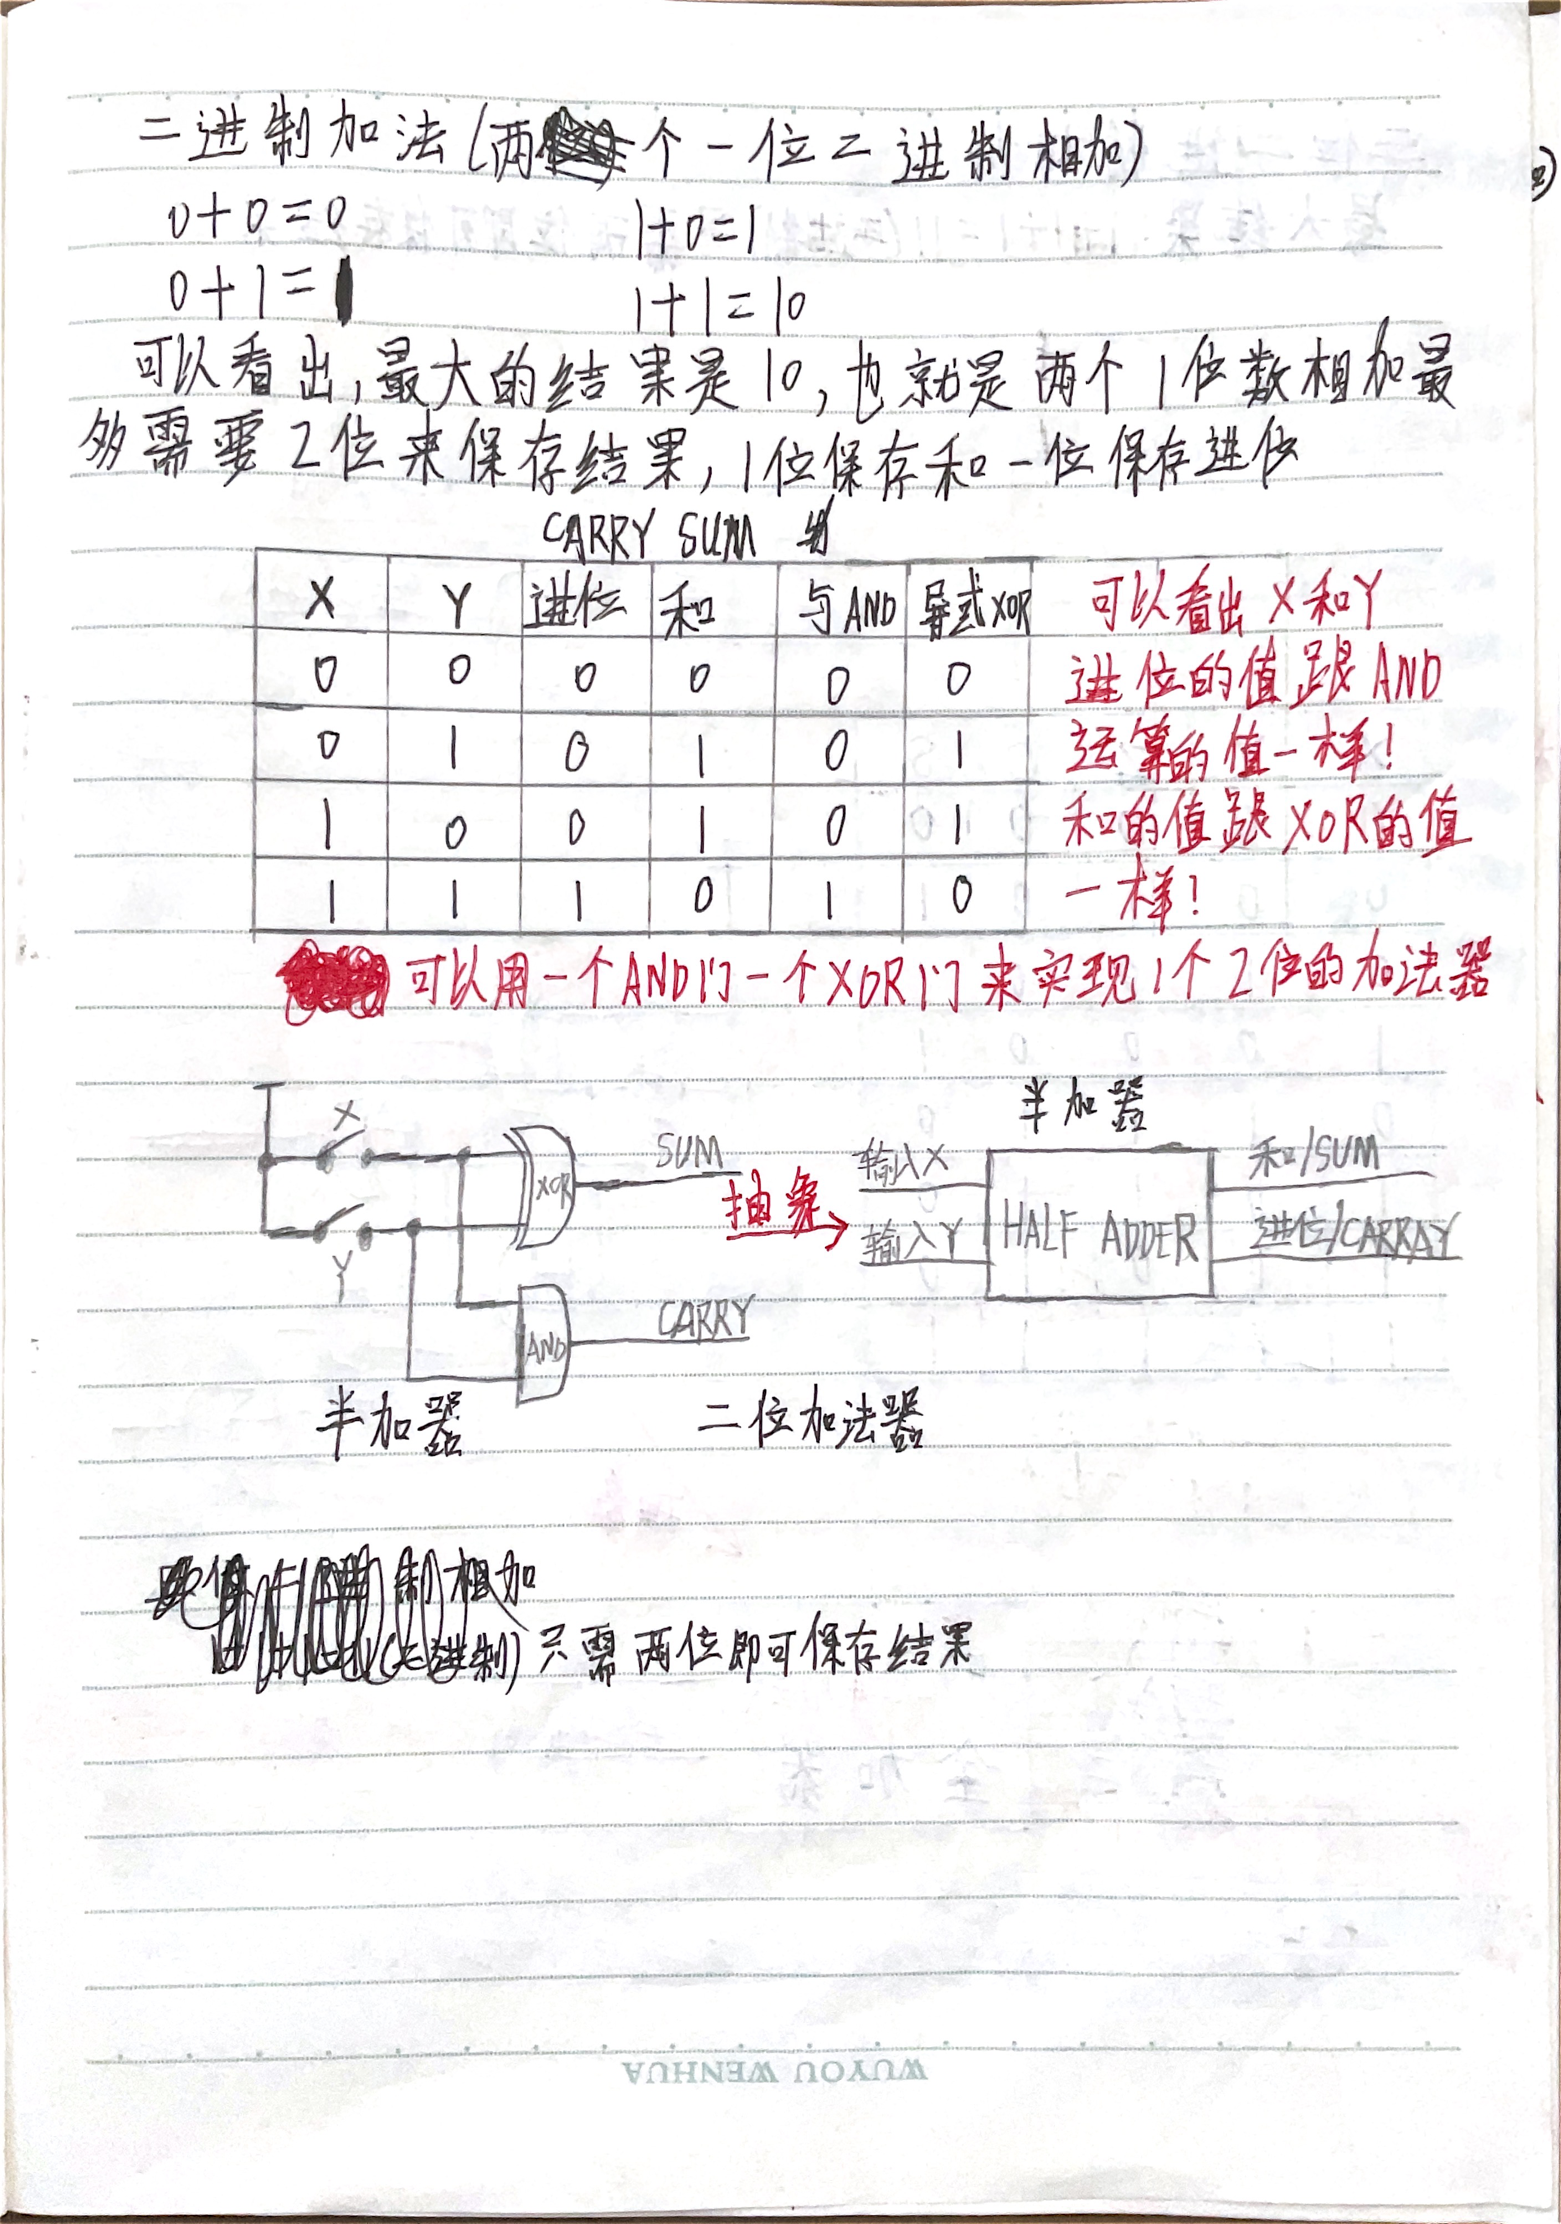 二进制加法(两个一位二进制相加)
0+0=0 1+0=1
0+1=1 1+1=10
可以看出,最大的结果是10,也就是两个1位数相加最
多需要2位来保存结果,1位保存和一位保存进位
CARRY SUM
X Y 进位 和 与AND 异或XOR
0 0 0 0 0 0
0 1 0 1 0 1
1 0 0 1 0 1
1 1 1 0 1 0
可以看出X和Y
进位的值跟AND
运算的值一样!
和的值跟XOR的值
一样!
可以用一个AND门一个XOR门来实现1个2位的加法器
半加器
X
XOR
SUM
抽象
输入X
和/SUM
Y
输入Y
HALF ADDER
进位/CARRAY
AND
CARRY
半加器 二位加法器
制相加
进制)只需两位即可保存结果
WUYOU WENHUA